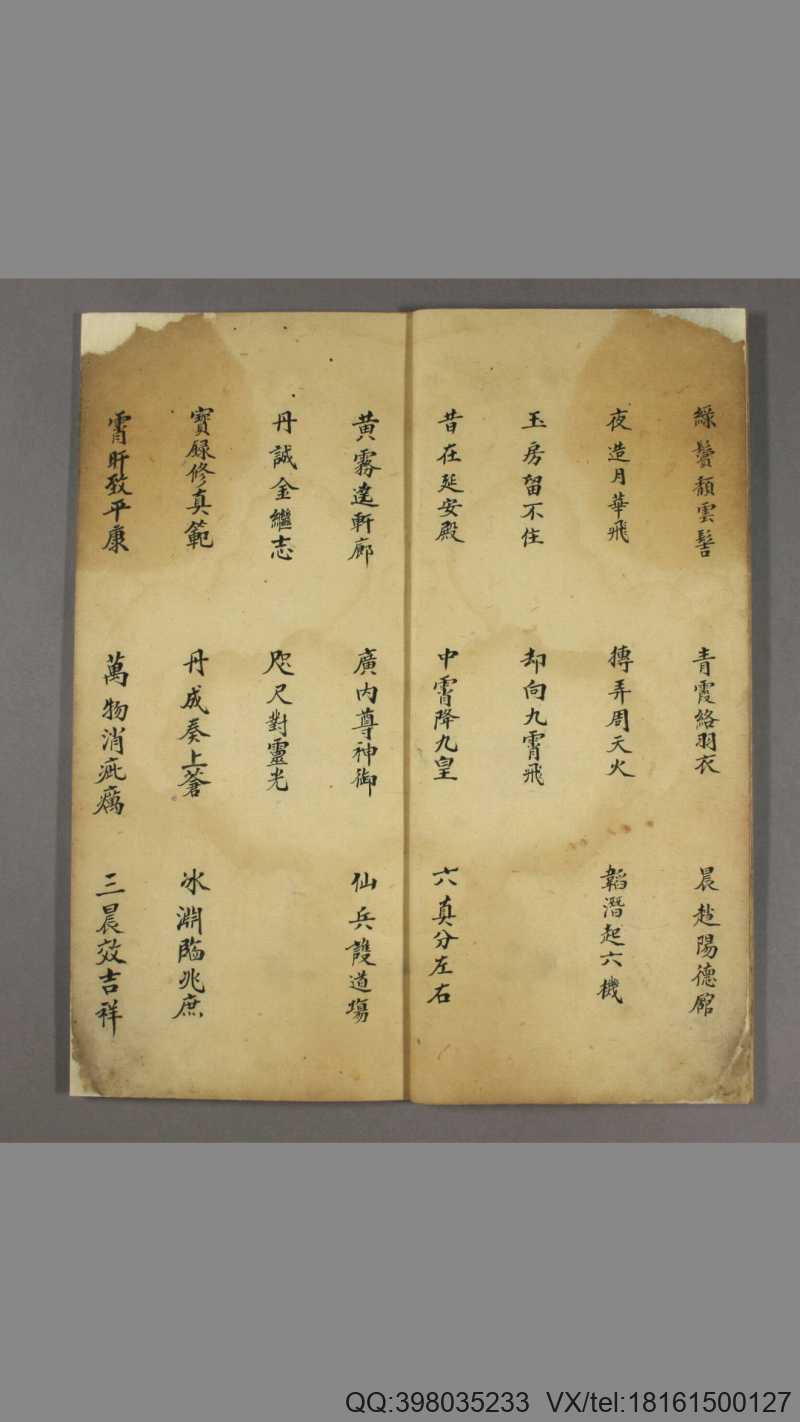 綠鬢頹雲髻 青霞絡羽衣 晨趂陽德館
夜造月華飛 摶弄周天火 韜潛起六機
玉房留不住 却向九霄飛
昔在延安殿 中霄降九皇 六真分左右
黃霧遶軒廊 廣內尊神御 仙兵䕶道塲
丹誠金繼志 咫尺對靈光
寳籙修真範 丹成奏上蒼 冰淵臨兆庶
霄旰致平康 萬物消疵癘 三晨效吉祥
QQ:398035233 VX/tel:18161500127